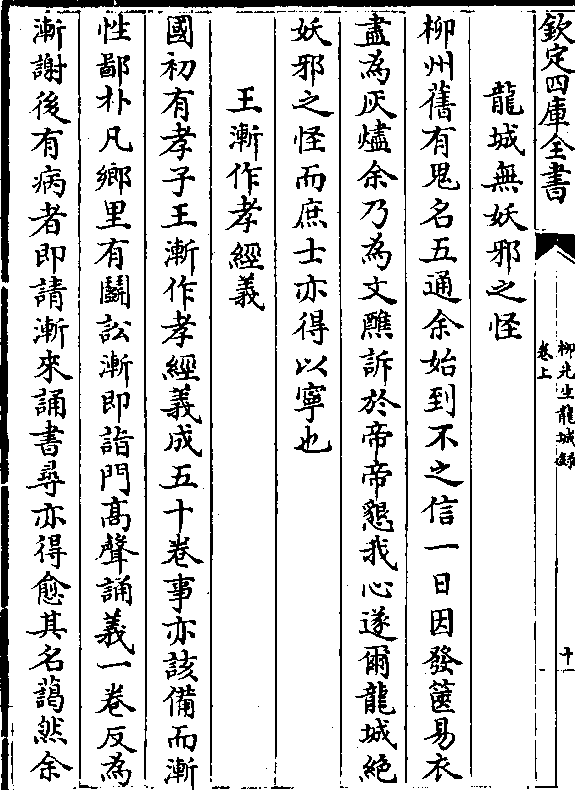 欽定四庫全書
柳先生龍城錄
卷上
十一
龍城無妖邪之怪
柳州舊有鬼名五通余始到不之信一日因發篋易衣
盡為灰燼余乃為文醮訴於帝帝懇我心遂爾龍城絕
妖邪之怪而庶士亦得以寧也
王漸作孝經義
國初有孝子王漸作孝經義成五十卷事亦該備而漸
性鄙朴凡鄉里有鬭訟漸即詣門高聲誦義一卷反為
漸謝後有病者即請漸來誦書尋亦得愈其名藹然余